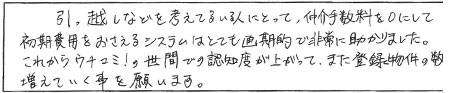 引っ越しなどを考えてる人にとって、仲介手数料を0にして
初期費用をおさえるシステムはとても画期的で非常に助かりました。
これからウチコミ!の世間での認知度が上がって、また登録物件の数
増えていく事を願います。